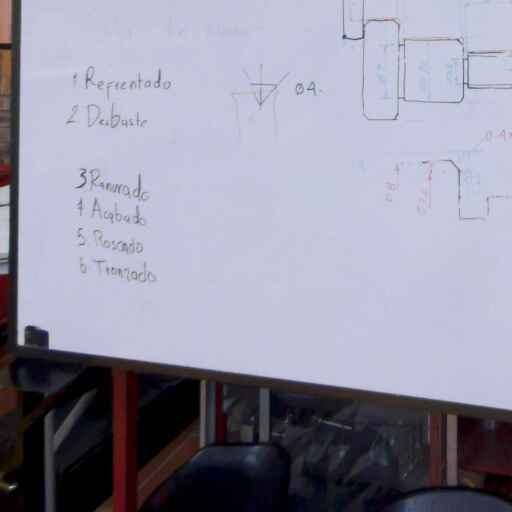 1. Refrentado
2. Desbaste
Ø4.
3 Ranurado
4 Acabado
5. Roscado
6. Tronzado